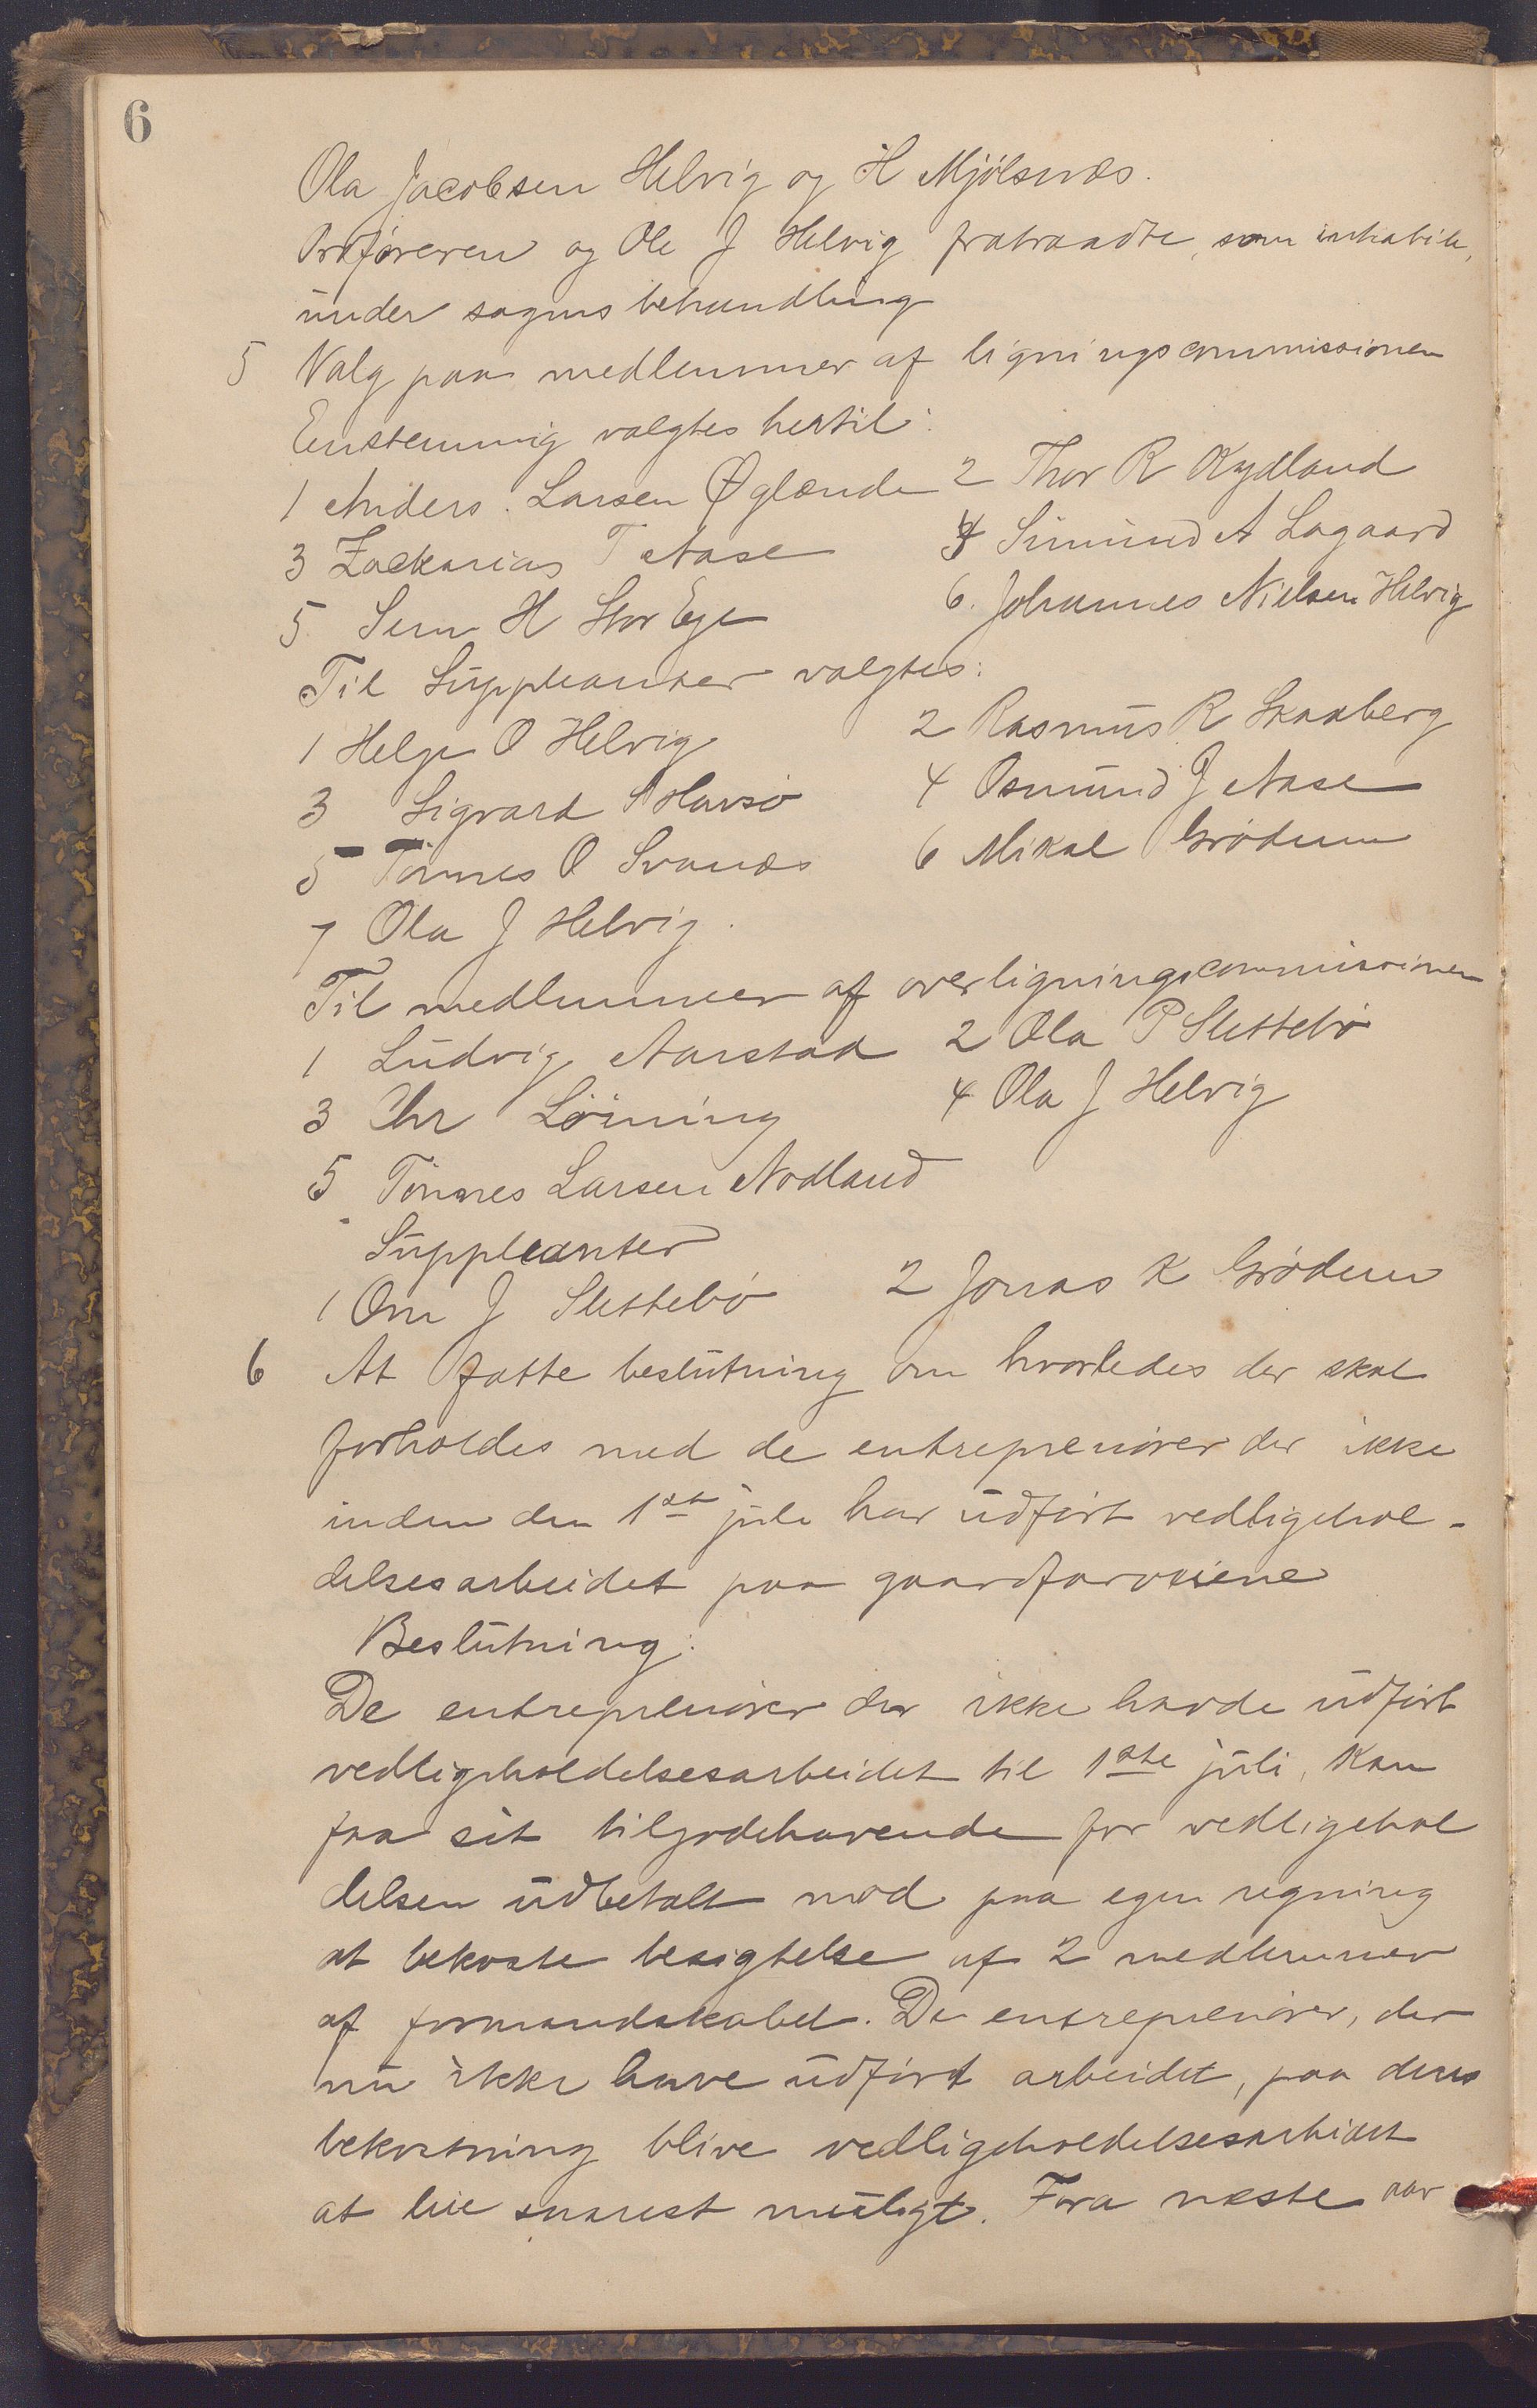 6
Ola Jacobsen Helvig og H Mjølsnæs.
Ordføreren og Ole J Helvig fratraadte, som inhabile,
under sagens behandling
5 Valg paa medlemmer af ligningscommissionen
Enstemmig valgtes hertil:
1 Anders. Larsen Øglænde 2 Thor R Rydland
3 Zackarias T Aase 4 Simund A Lagaard
5 Sem H Stor Ege 6. Johannes Nielsen Helvig
Til Suppleanter valgtes:
1 Helge O Helvig 2 Rasmus R Skaaberg
3 Sigvard S Havsø 4 Osmund J Aase
5 Tönnes O Svanæs 6 Mikal Grødem
7 Ola J Helvig.
Til medlemmer af overligningscommissionen
1 Ludvig Aarstad 2 Ola P Slettebø
3 Chr Løining 4 Ola J Helvig
5 Tönnes Larsen Nodland
Suppleanter
1 Om J Slettebø 2 Jonas K Grødem
6 At fatte beslutning om hvorledes der skal
forholdes med de entreprenører der ikke
inden den 1st juli har udført vedligehol-
delsesarbeidet paa gaardsarveiene
Beslutning:
De entreprenører der ikke havde udført
vedligeholdelsesarbeidet til 1ste juli, kan
faa sit tilgodehavende for vedligehol
delsen udbetalt mod paa egen regning
at bekoste besigtelse af 2 medlemmer
af formandskabet. De entreprenører, der
nu ikke have udført arbeidet, paa deres
bekostning blive vedligeholdelsesarbeidet
at leie snarest muligt. Fra næste aar